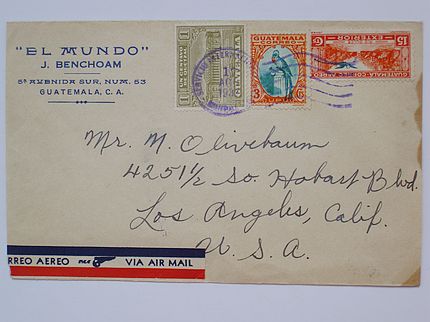 "EL MUNDO"
J. BENCHOAM
5ª AVENIDA SUR, NUM. 53
GUATEMALA, C. A.
GUATEMALA
CORREOS
3 ¢
15 ¢
EXTERIOR
1 1
Mr. M. Olivebaum
4251 1/2 So. Hobart Blvd.
Los Angeles, Calif.
U. S. A.
RREO AEREO VIA AIR MAIL